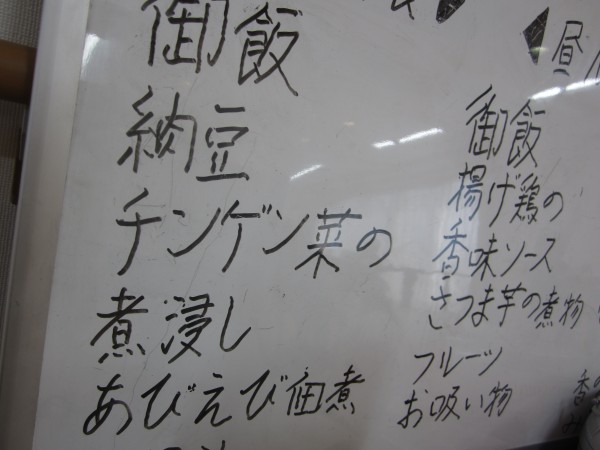 御飯
納豆
チンゲン菜の
煮浸し
あびえび佃煮
昼
御飯
揚げ鶏の
香味ソース
さつま芋の煮物
フルーツ
お吸い物